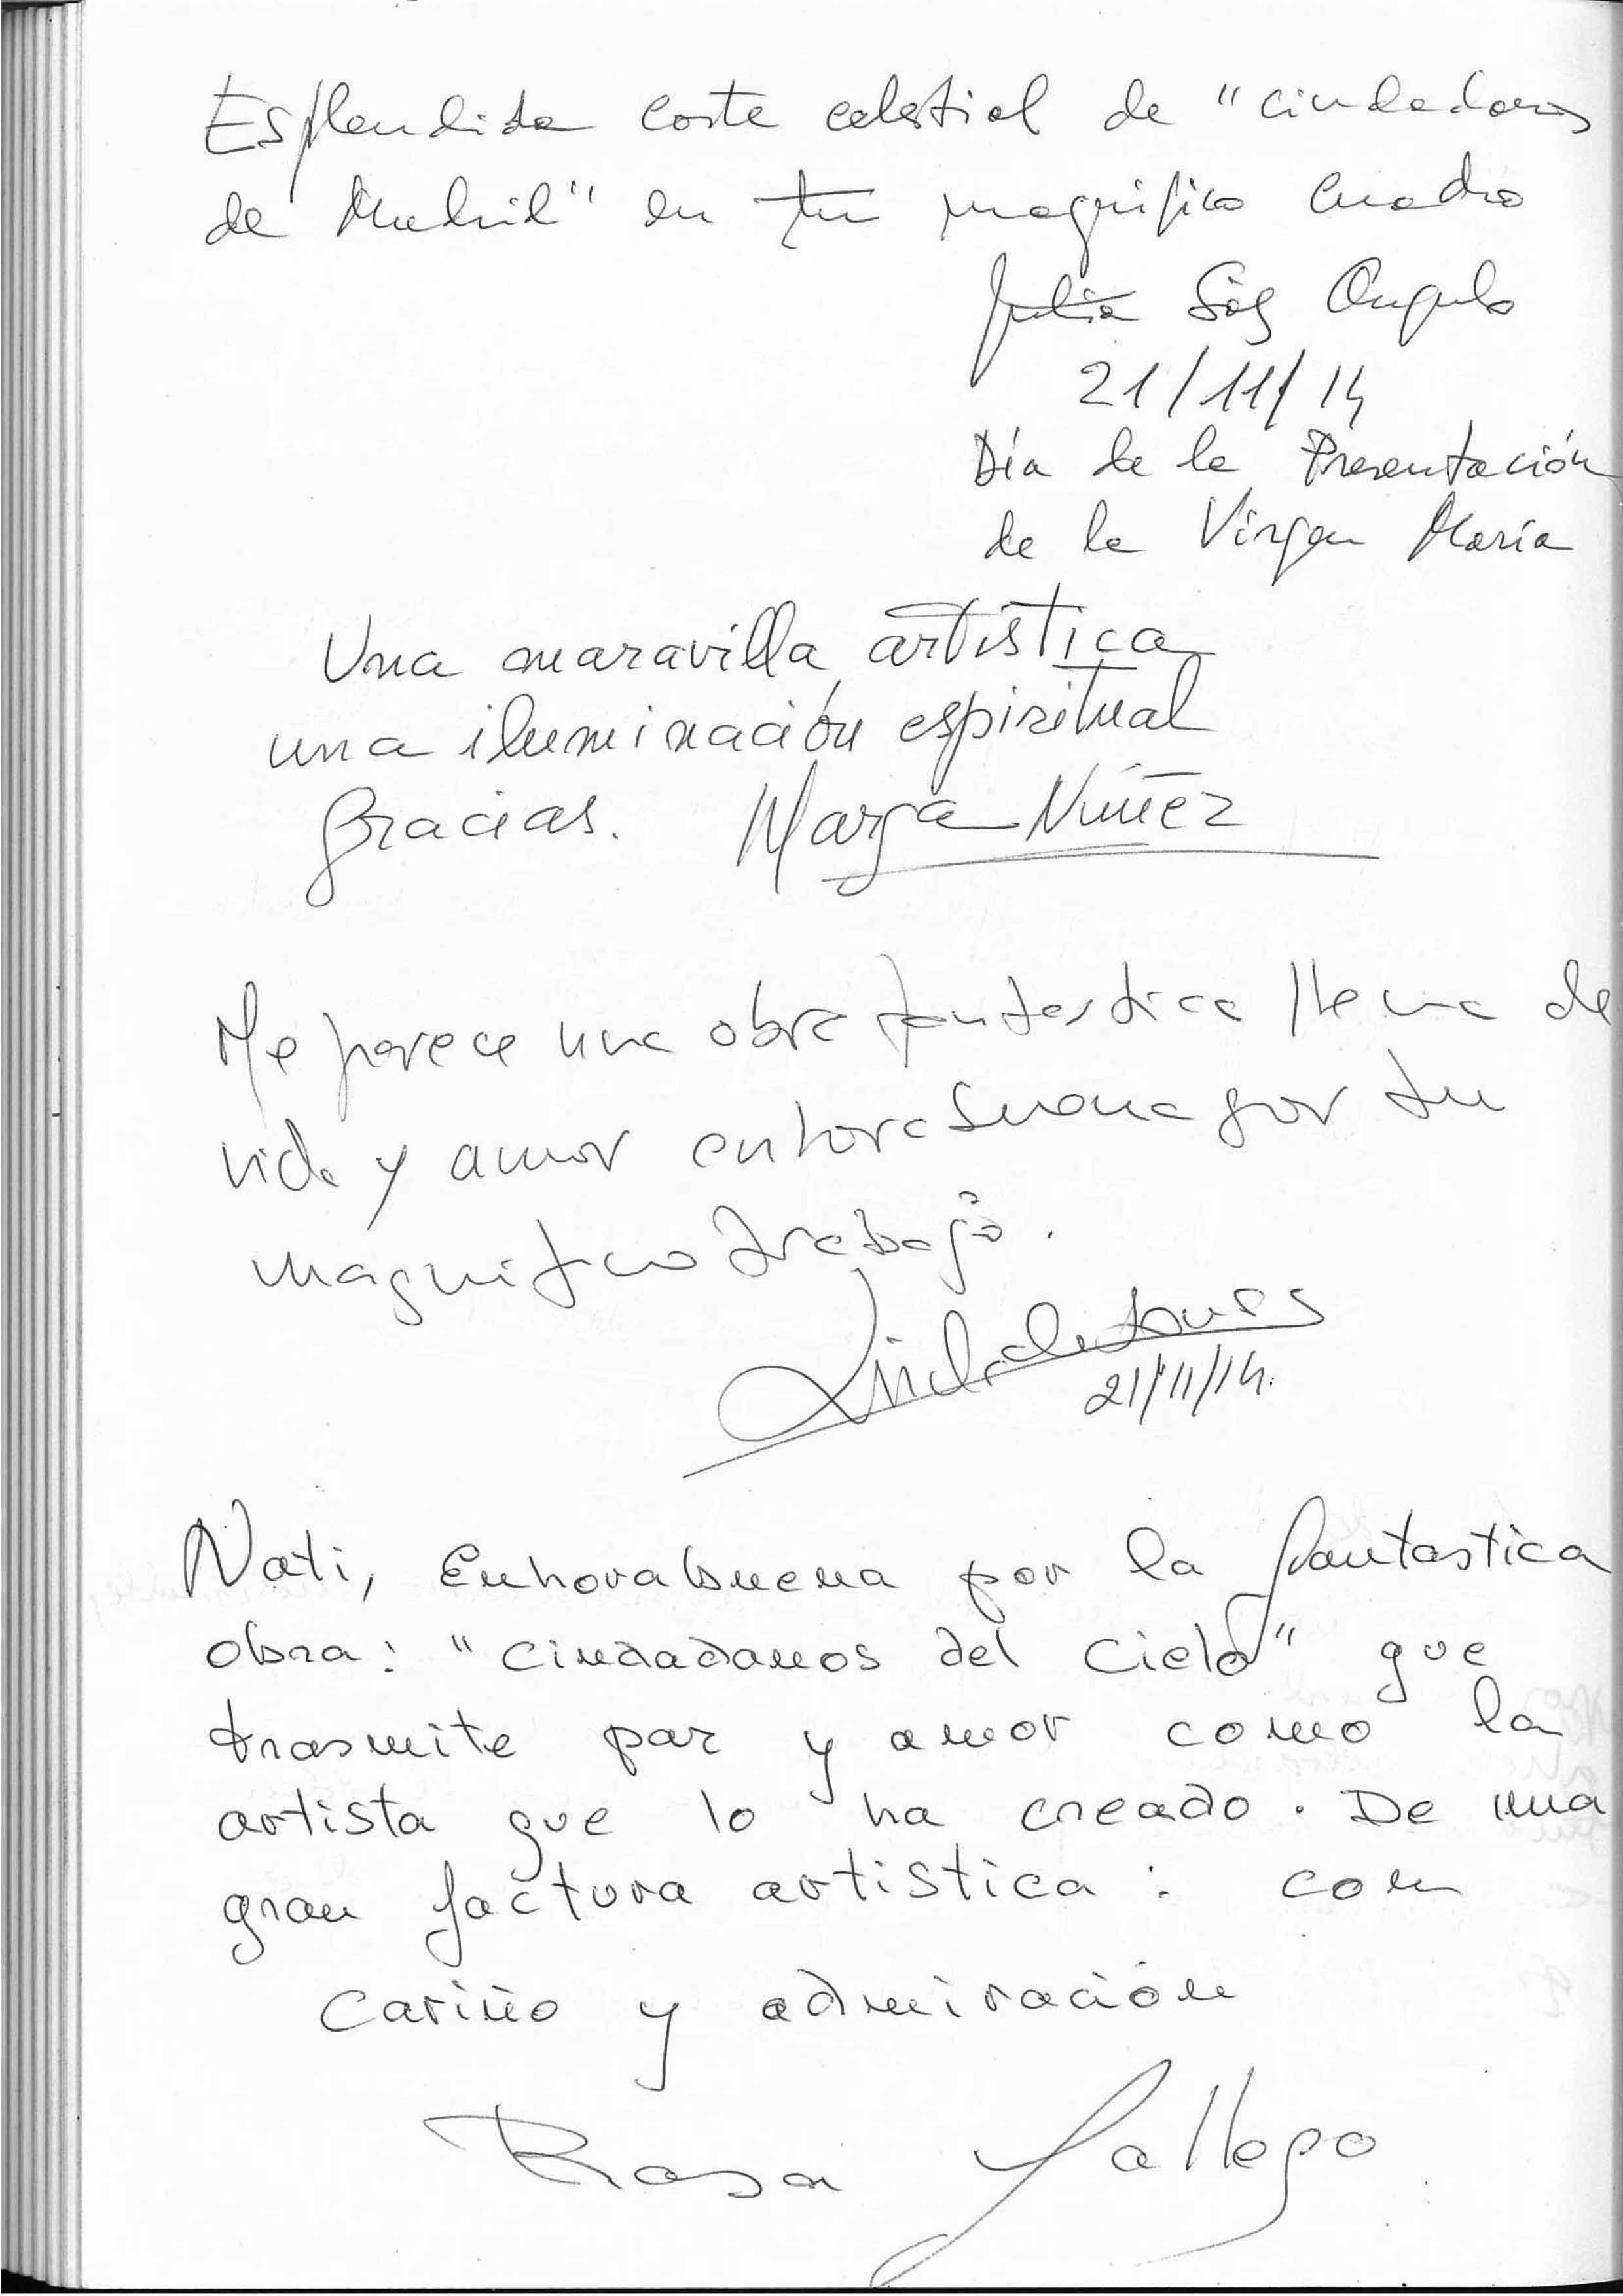 Esplendida corte celestial de "ciudadanos
de Madrid" en tu magnífico cuadro
Julia Sáez Angulo
21/11/14
Día de la Presentación
de la Virgen María
Una maravilla artística
una iluminación espiritual
Gracias. Marga Núñez
Me parece una obra fantastica llena de
vida y amor enhorabuena por tu
magnifico trabajo.
Linda de
21/11/14.
Nati, Enhorabuena por la fantastica
obra: "ciudadanos del cielo" que
trasmite paz y amor como la
artista que lo ha creado. De una
gran factura artistica: con
cariño y admiración
Rosa Gallego